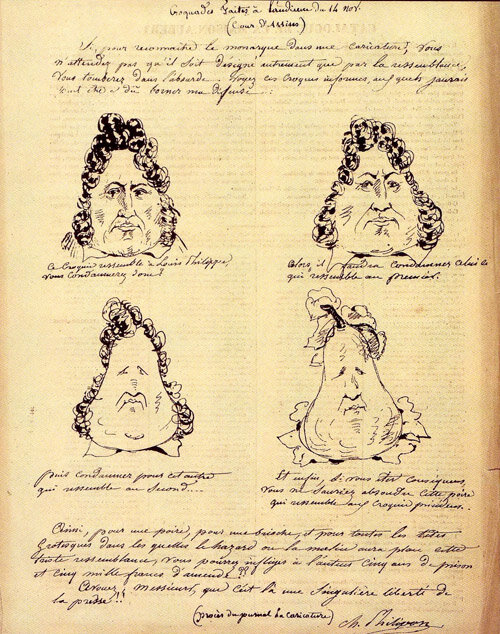 Croquades faites à l'audience du 14 Nov.
(Cour d'Assises)
Si, pour reconnaître le monarque dans une caricature, vous
n'attendez pas qu'il soit designé autrement que par la ressemblance,
vous tomberez dans l'absurde. Voyez ces croquis informes, auxquels j'aurais
peut être dû borner ma défense :
Ce croquis ressemble à Louis Philippe,
vous condamnerez donc ?
Alors il faudra condamner celui ci
qui ressemble au premier.
Puis condamner pour cet autre
qui ressemble au second....
Et enfin, si vous êtes conséquens,
vous ne sauriez absoudre cette poire
qui ressemble aux croquis précédens.
Ainsi, pour une poire, pour une brioche, et pour toutes les têtes
grotesques dans lesquelles le hazard ou la malice aura placé cette
triste ressemblance, vous pourrez infliger à l'auteur cinq ans de prison
et cinq mille francs d'amende ??
Avouez, Messieurs, que c'est là une singulière liberté de
la presse !!
(procès du journal La caricature)
Ch. Philipon